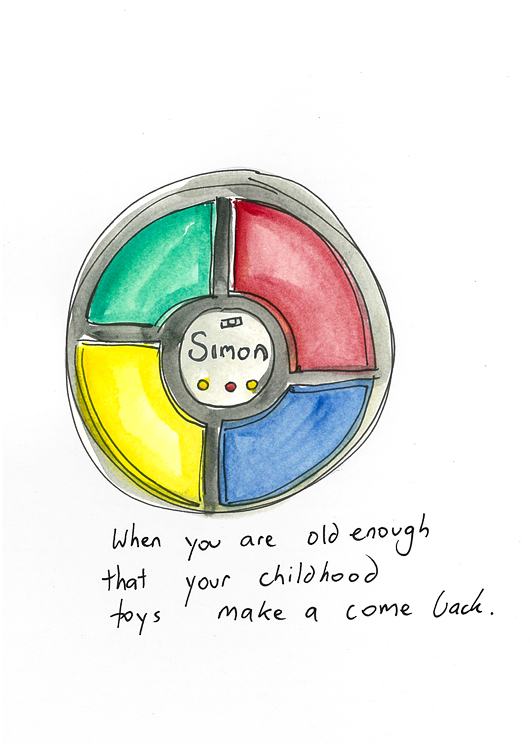 Simon
When you are old enough
that your childhood
toys make a come back.